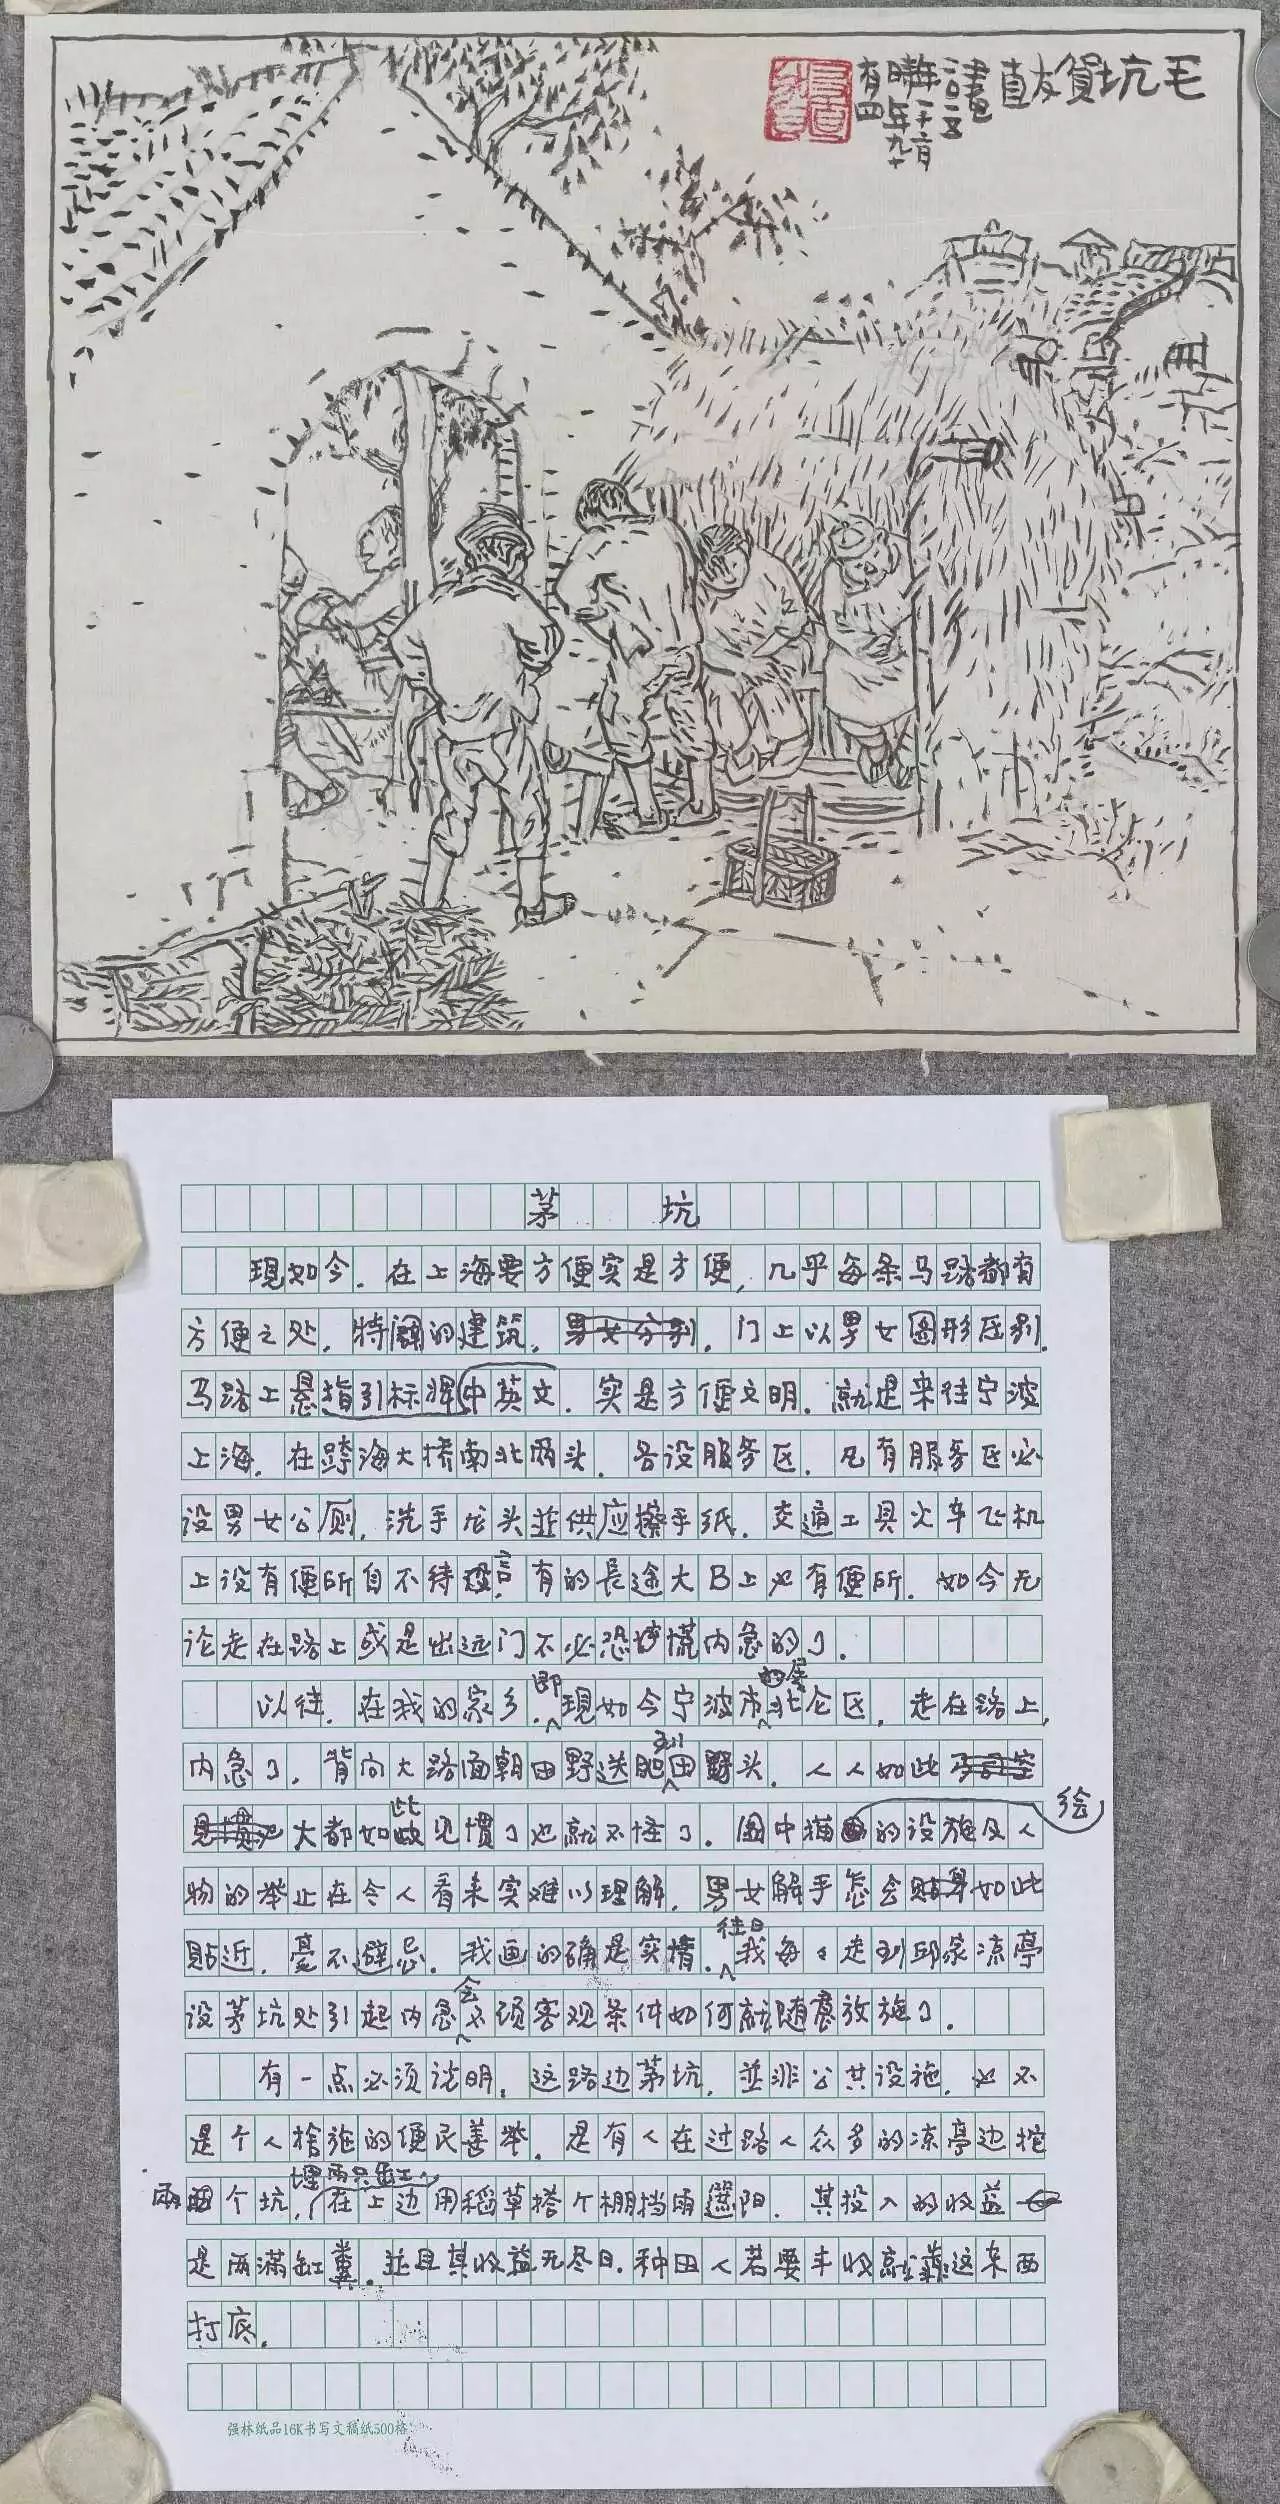 毛坑 贺友直
画 二〇一五
年六月
时年九十
有四
茅 坑
现如今. 在上海要方便实是方便, 几乎每条马路都有
方便之处, 特阔的建筑, 门上以男女图形区别.
马路上悬中英文指引标牌. 实是方便文明. 就是来往宁波
上海. 在跨海大桥南北两头. 各设服务区. 凡有服务区必
设男女公厕, 洗手龙头並供应擦手纸. 交通工具火车飞机
上设有便所自不待言, 有的長途大B上也有便所. 如今无
论走在路上或是出远门不必恐慌内急的了.
以往. 在我的家乡. 即現如今宁波市属北仑区. 走在路上,
内急了, 背向大路面朝田野送肥到田头. 人人如此
大都如此见惯了也就不怪了. 图中描绘的设施及人
物的举止在令人看来实难以理解, 男女解手怎会如此
贴近, 毫不避忌. 我画的确是实情. 往日我每每走到邱家凉亭
设茅坑处引起内急会不顾客观条件如何就随意放施了.
有一点必须说明, 这路边茅坑, 並非公共设施, 也不
是个人捨施的便民善举. 是有人在过路人众多的凉亭边挖
两个坑, 埋两只缸, 在上边用稻草搭个棚挡雨遮阳. 其投入的收益
是两满缸粪. 並且其收益无尽日. 种田人若要丰收就靠这东西
打底.
强林纸品16K书写文稿纸500格